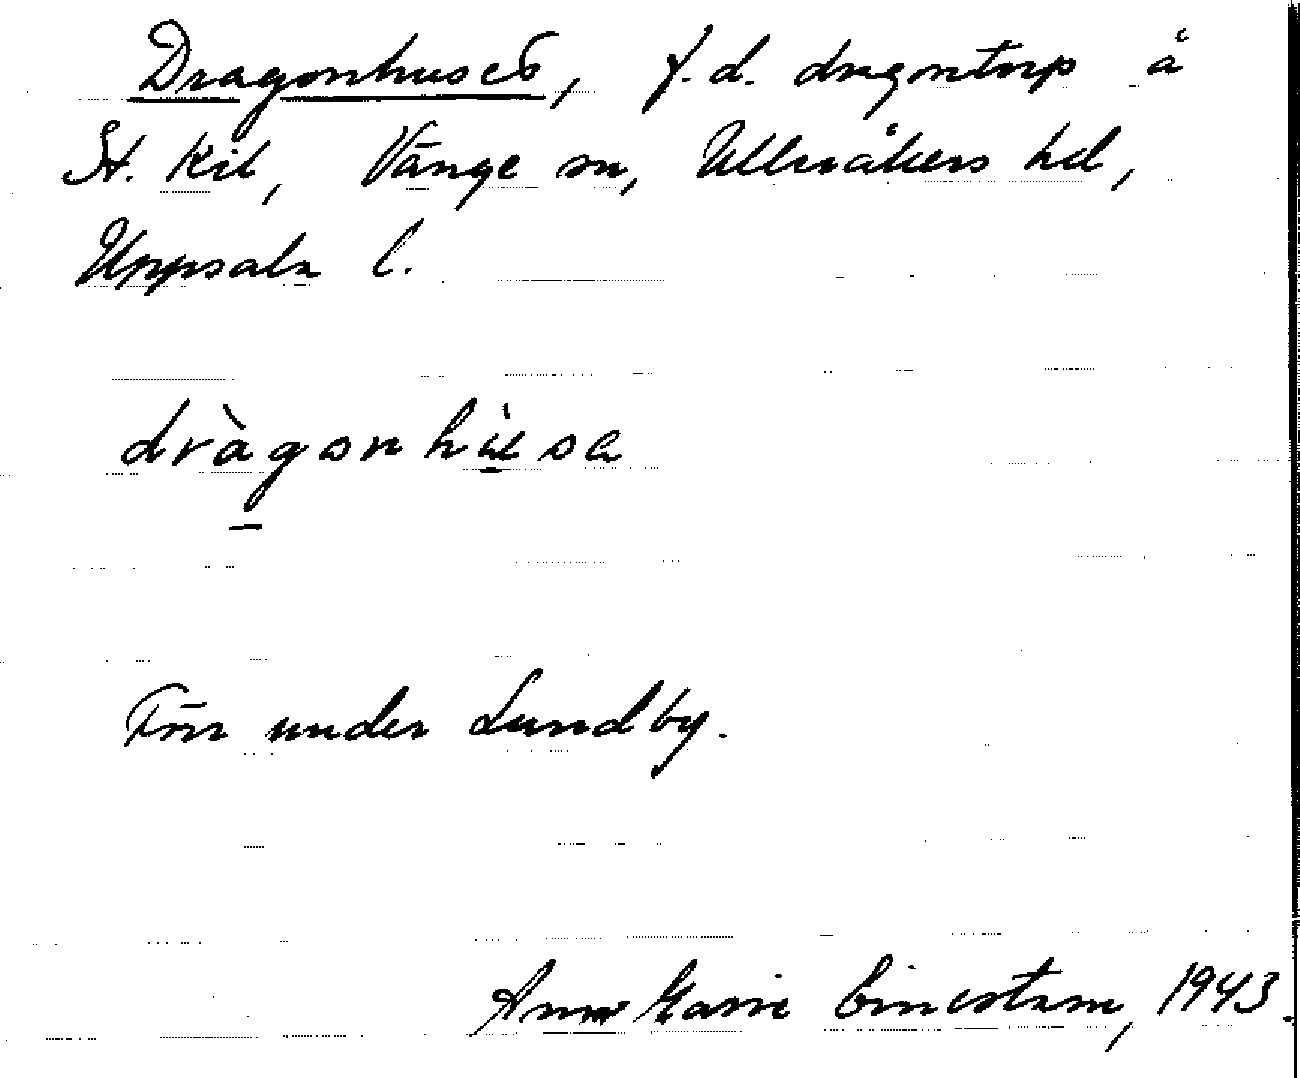 Dragonhuset, f.d. dragontorp å
St. Kil, Vänge sn, Ulleråkers hd,
Uppsala l.
dràgonhùsa
Förr under Lundby.
Anne Marie 1943.